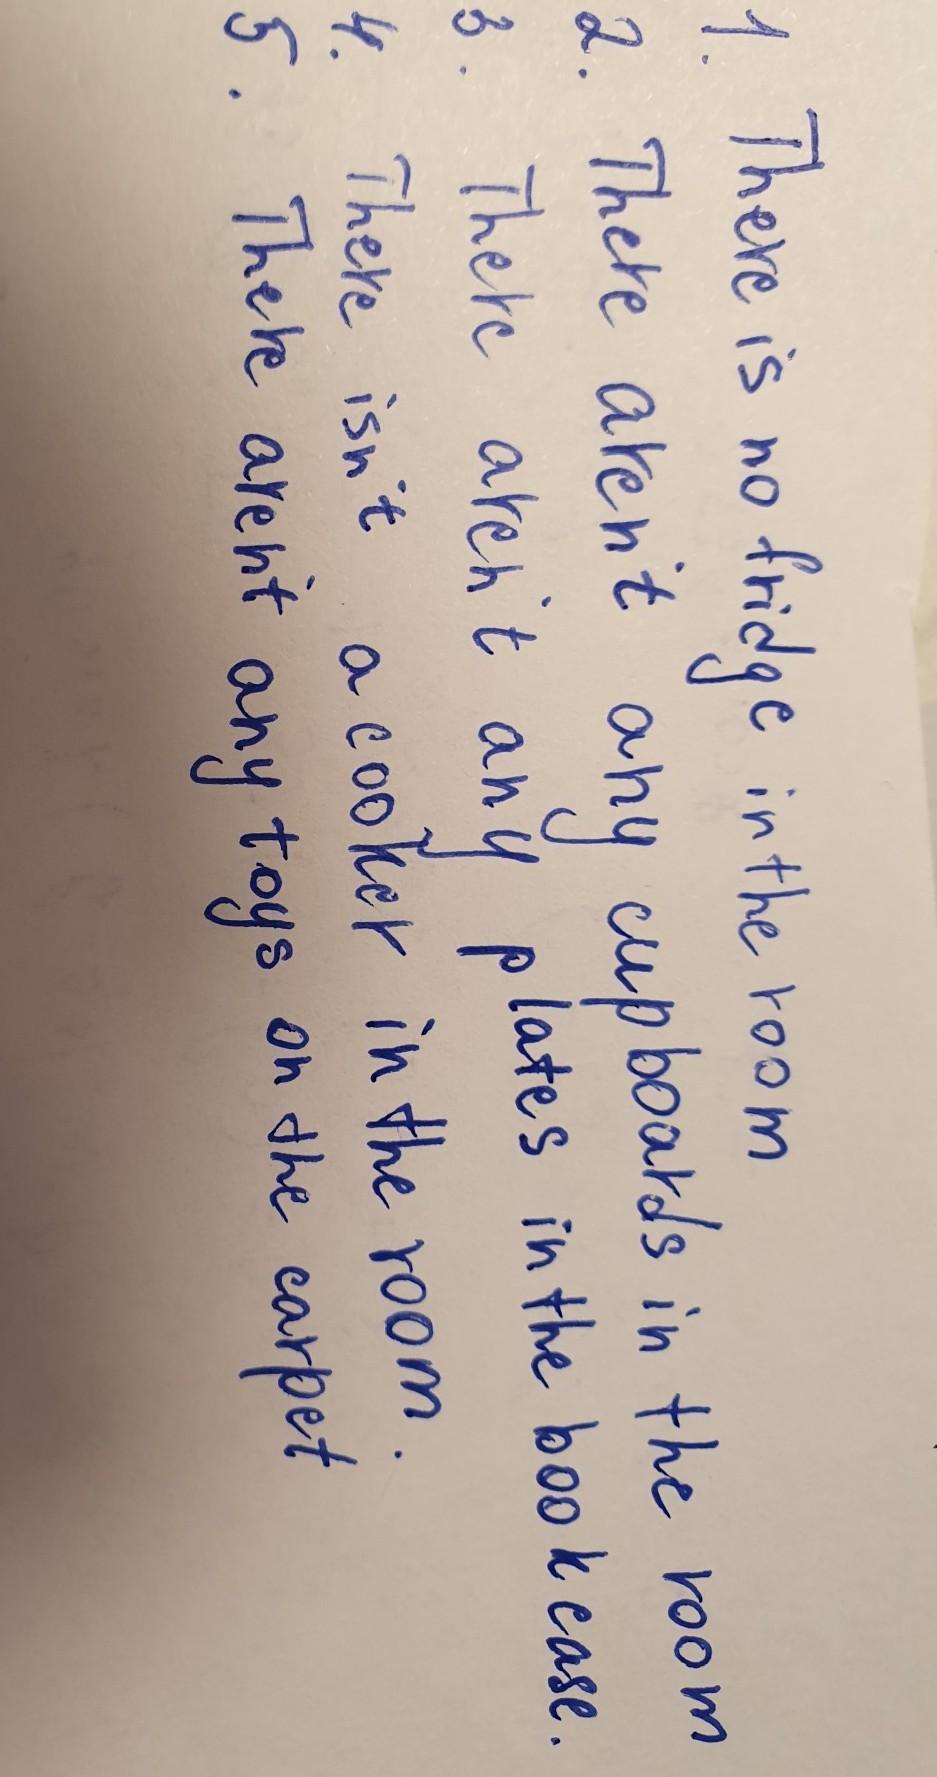 1. There is no fridge in the room
2. There aren't any cupboards in the room
3. There aren't any plates in the bookcase.
4. There isn't a cooker in the room.
5. There aren't any toys on the carpet